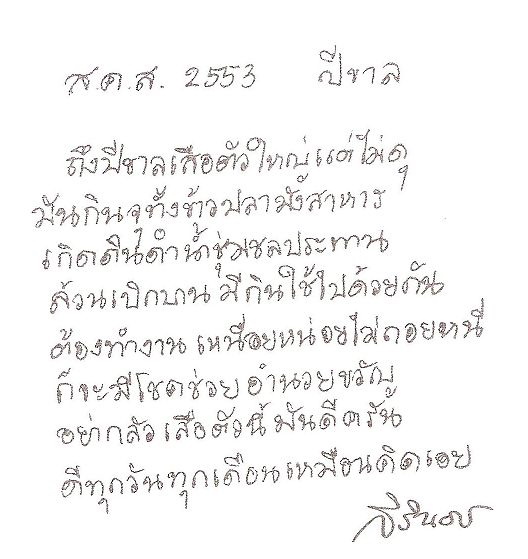 ส.ค.ส. 2553 ปีขาล
ถึงปีขาลเสือตัวใหญ่แต่ไม่ดุ
มันกินจุทั้งข้าวปลามังสาหาร
เกิดดินดำน้ำชุ่มชลประทาน
ล้วนเบิกบาน มีกินใช้ไปด้วยกัน
ต้องทำงาน เหนื่อยหน่อยไม่ถอยหนี
ก็จะมีโชคช่วยอำนวยขวัญ
อย่ากลัวเสือตัวนี้มันดีครัน
ดีทุกวันทุกเดือนเหมือนคิดเอย
สิรินธร